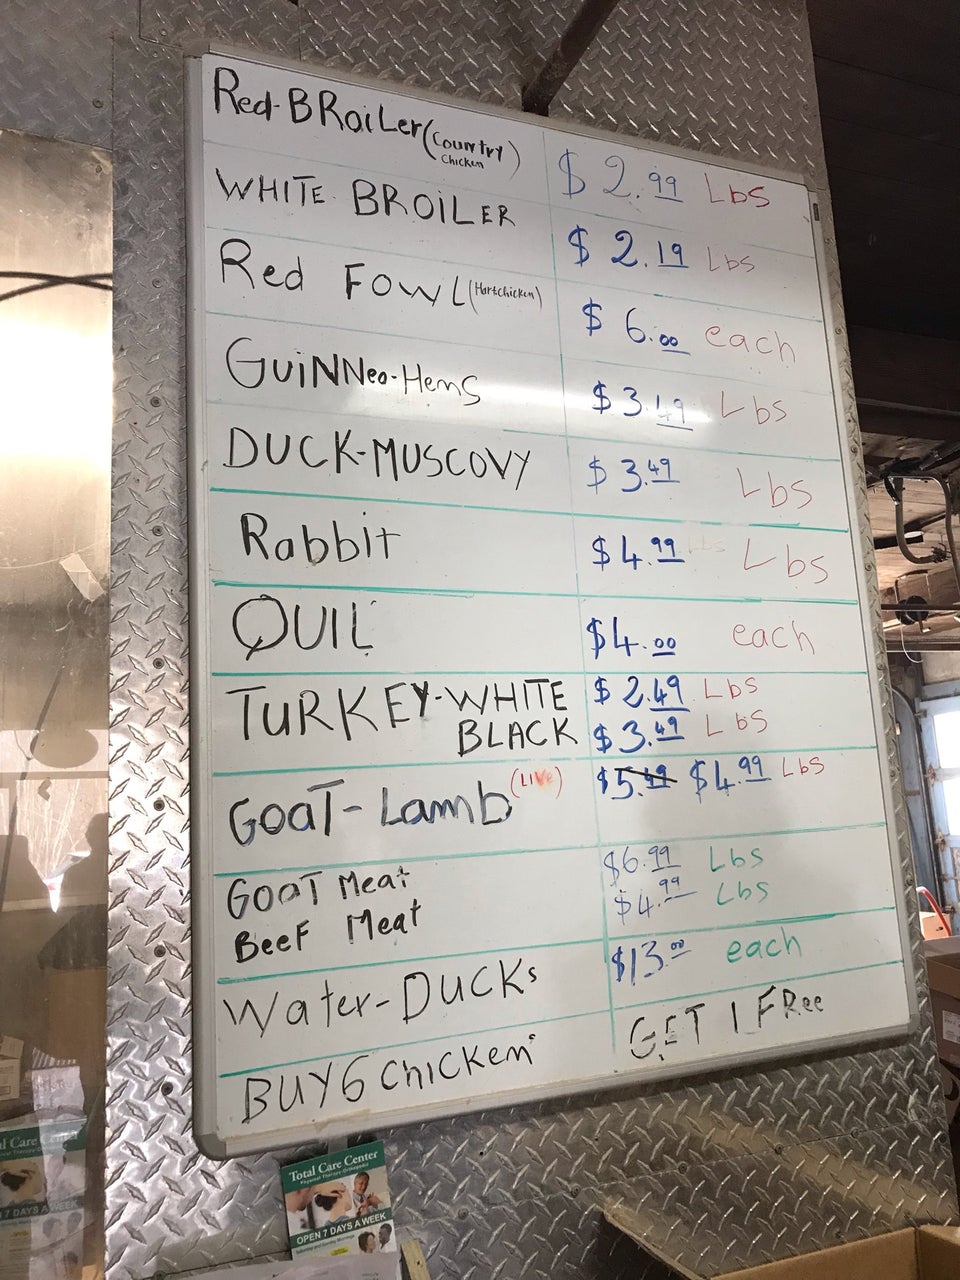 Red-BRoiLer (Country Chicken) $ 2.99 Lbs
WHITE BROiLER $ 2.19 Lbs
Red FOWL (Hartchicken) $ 6.00 each
GuiNNea-Hens $ 3.49 Lbs
DUCK-MUSCOVY $ 3.49 Lbs
Rabbit $ 4.99 Lbs Lbs
QUIL $4.00 each
TURKEY-WHITE $ 2.49 Lbs
BLACK $ 3.49 Lbs
GOAT-Lamb (LIVe) $5.49 $4.99 Lbs
GOAT Meat $6.99 Lbs
BeeF Meat $4.99 Lbs
Water-DUCKs $13.00 each
BUY 6 CHiCKen GET 1 FRee
Total Care Center
OPEN 7 DAYS A WEEK
al Care Center
7 DAYS A WEEK